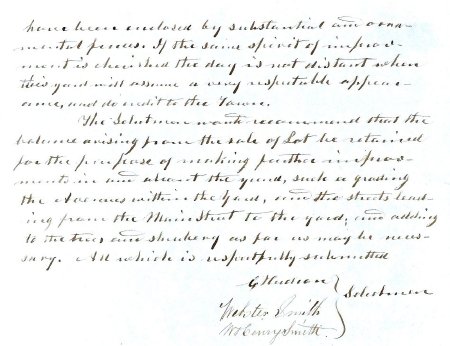 have been enclosed by substantial and orna-
mental fences. If the same spirit of improve-
ment is cherished the day is not distant when
this yard will assume a very respectable appear-
ance, and do credit to the Town.
The Selectmen would recommend that the
balance arising from the sale of Lot be retained
for the purpose of making further improve-
ments in and about the yard, such as grading
the Avenues within the Yard, and the streets lead-
ing from the Main Street to the yard; and adding
to the trees and shrubery as far as may be neces-
sary. All which is respectfully submitted
G Hudson
Webster Smith
W Henry Smith
Selectmen